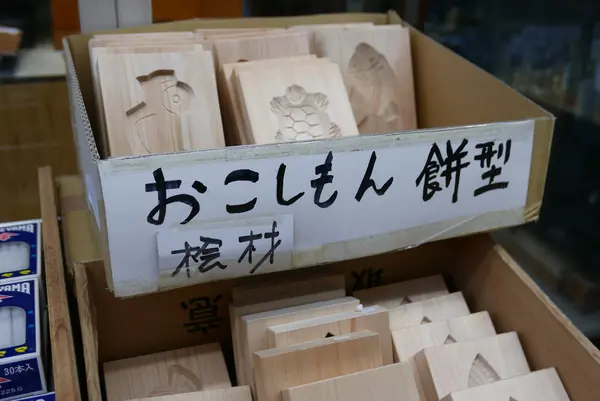 おこしもん 餅型
桧材
意
EYAMA
EYAMA
30本入